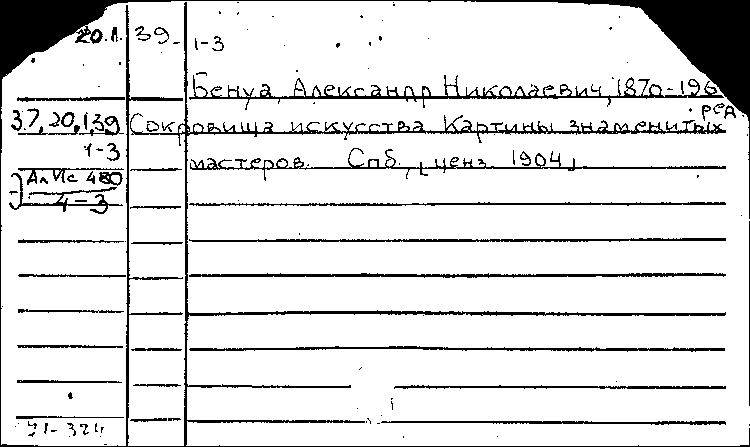 20.1. 39- 1-3
Бенуа, Александр Николаевич, 1870-196
ред
37,20,1,39 Сокровища искусства Картины знаменитых
1-3 мастеров. Спб, [ценз. 1904]
4-3
71-324